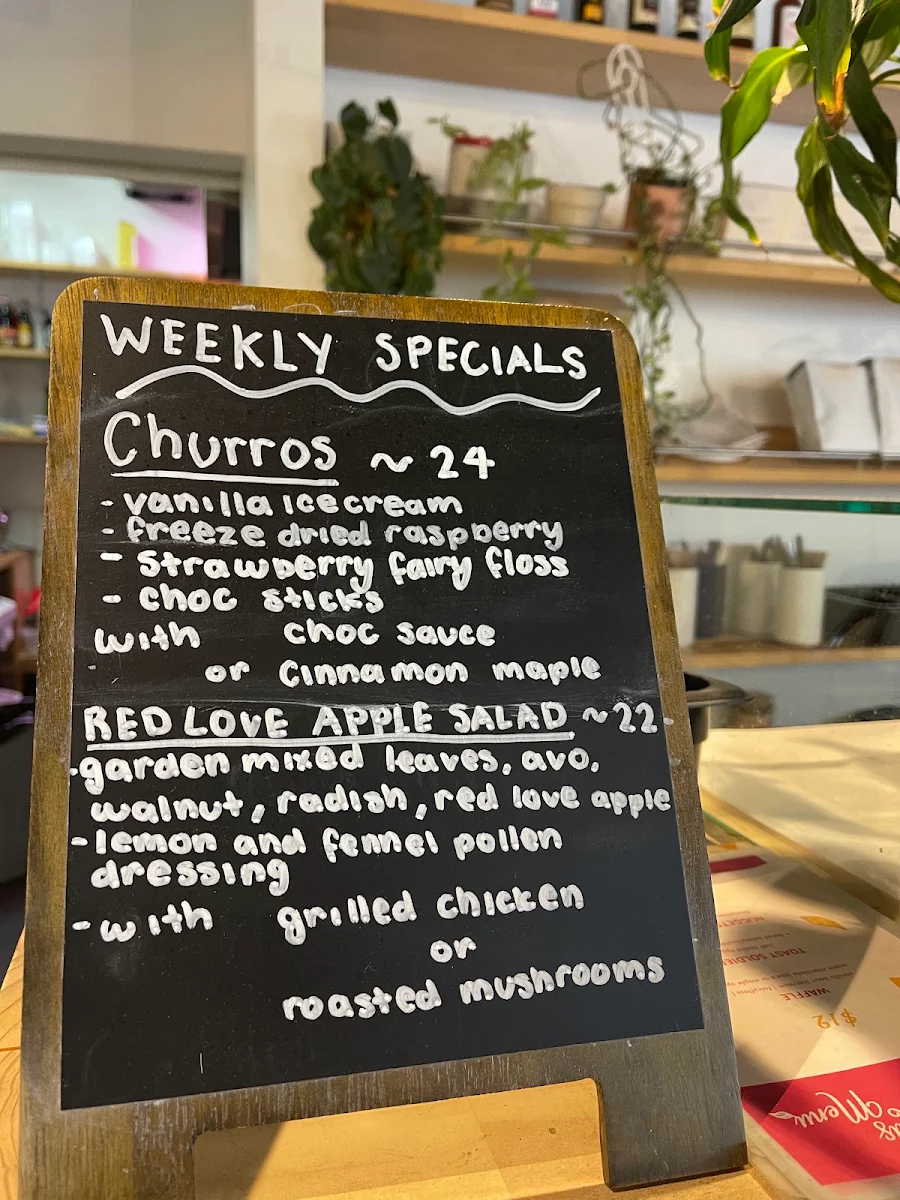 WEEKLY SPECIALS
Churros ~ 24
- vanilla icecream
- freeze dried raspberry
- strawberry fairy floss
- choc sticks
with choc sauce
or cinnamon maple
RED LOVE APPLE SALAD ~22-
-garden mixed leaves, avo,
walnut, radish, red love apple
-lemon and fennel pollen
dressing
-with grilled chicken
or
roasted mushrooms
TOAST SOLDIE
WAFFLE
$12
Menu